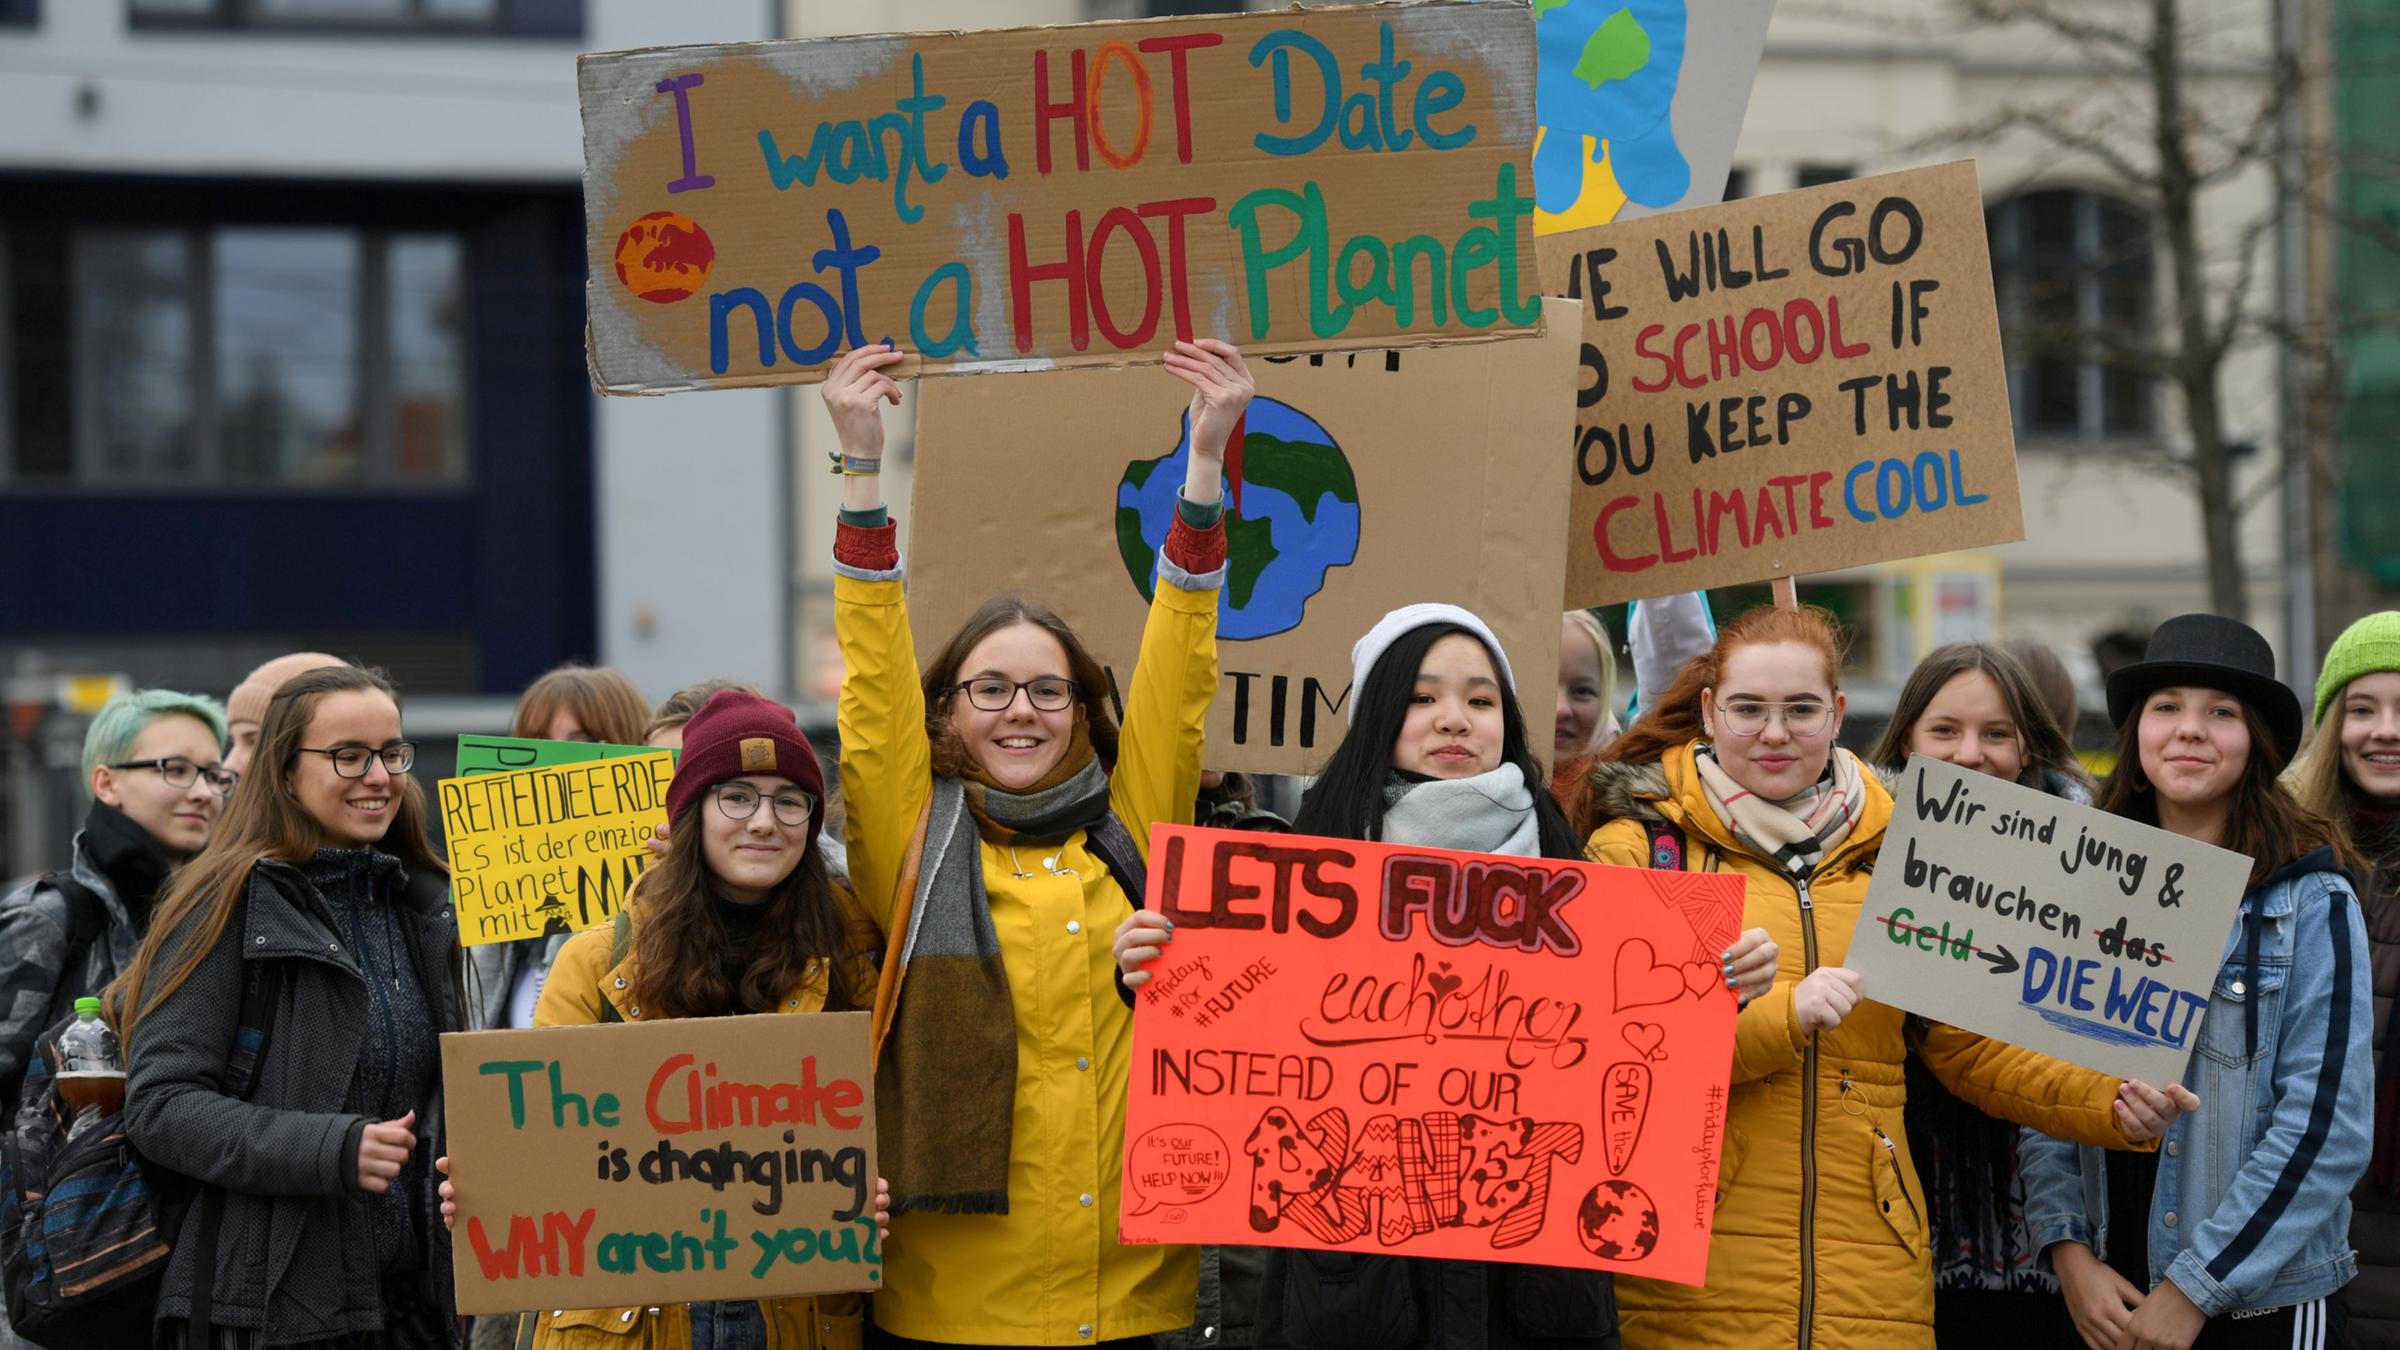 I want a HOT Date
not a HOT Planet
WILL GO
SCHOOL IF
YOU KEEP THE
CLIMATE COOL
RETTET DIE ERDE
Es ist der einzige
Planet
mit
The Climate
is changing
WHY aren't you?
LETS FUCK
each other
INSTEAD OF OUR
PLANET
#fridays
for
#FUTURE
It's our
FUTURE!
HELP NOW!!!
SAVE the
#fridaysforfuture
Wir sind jung &
brauchen das
Geld → DIE WELT
adidas